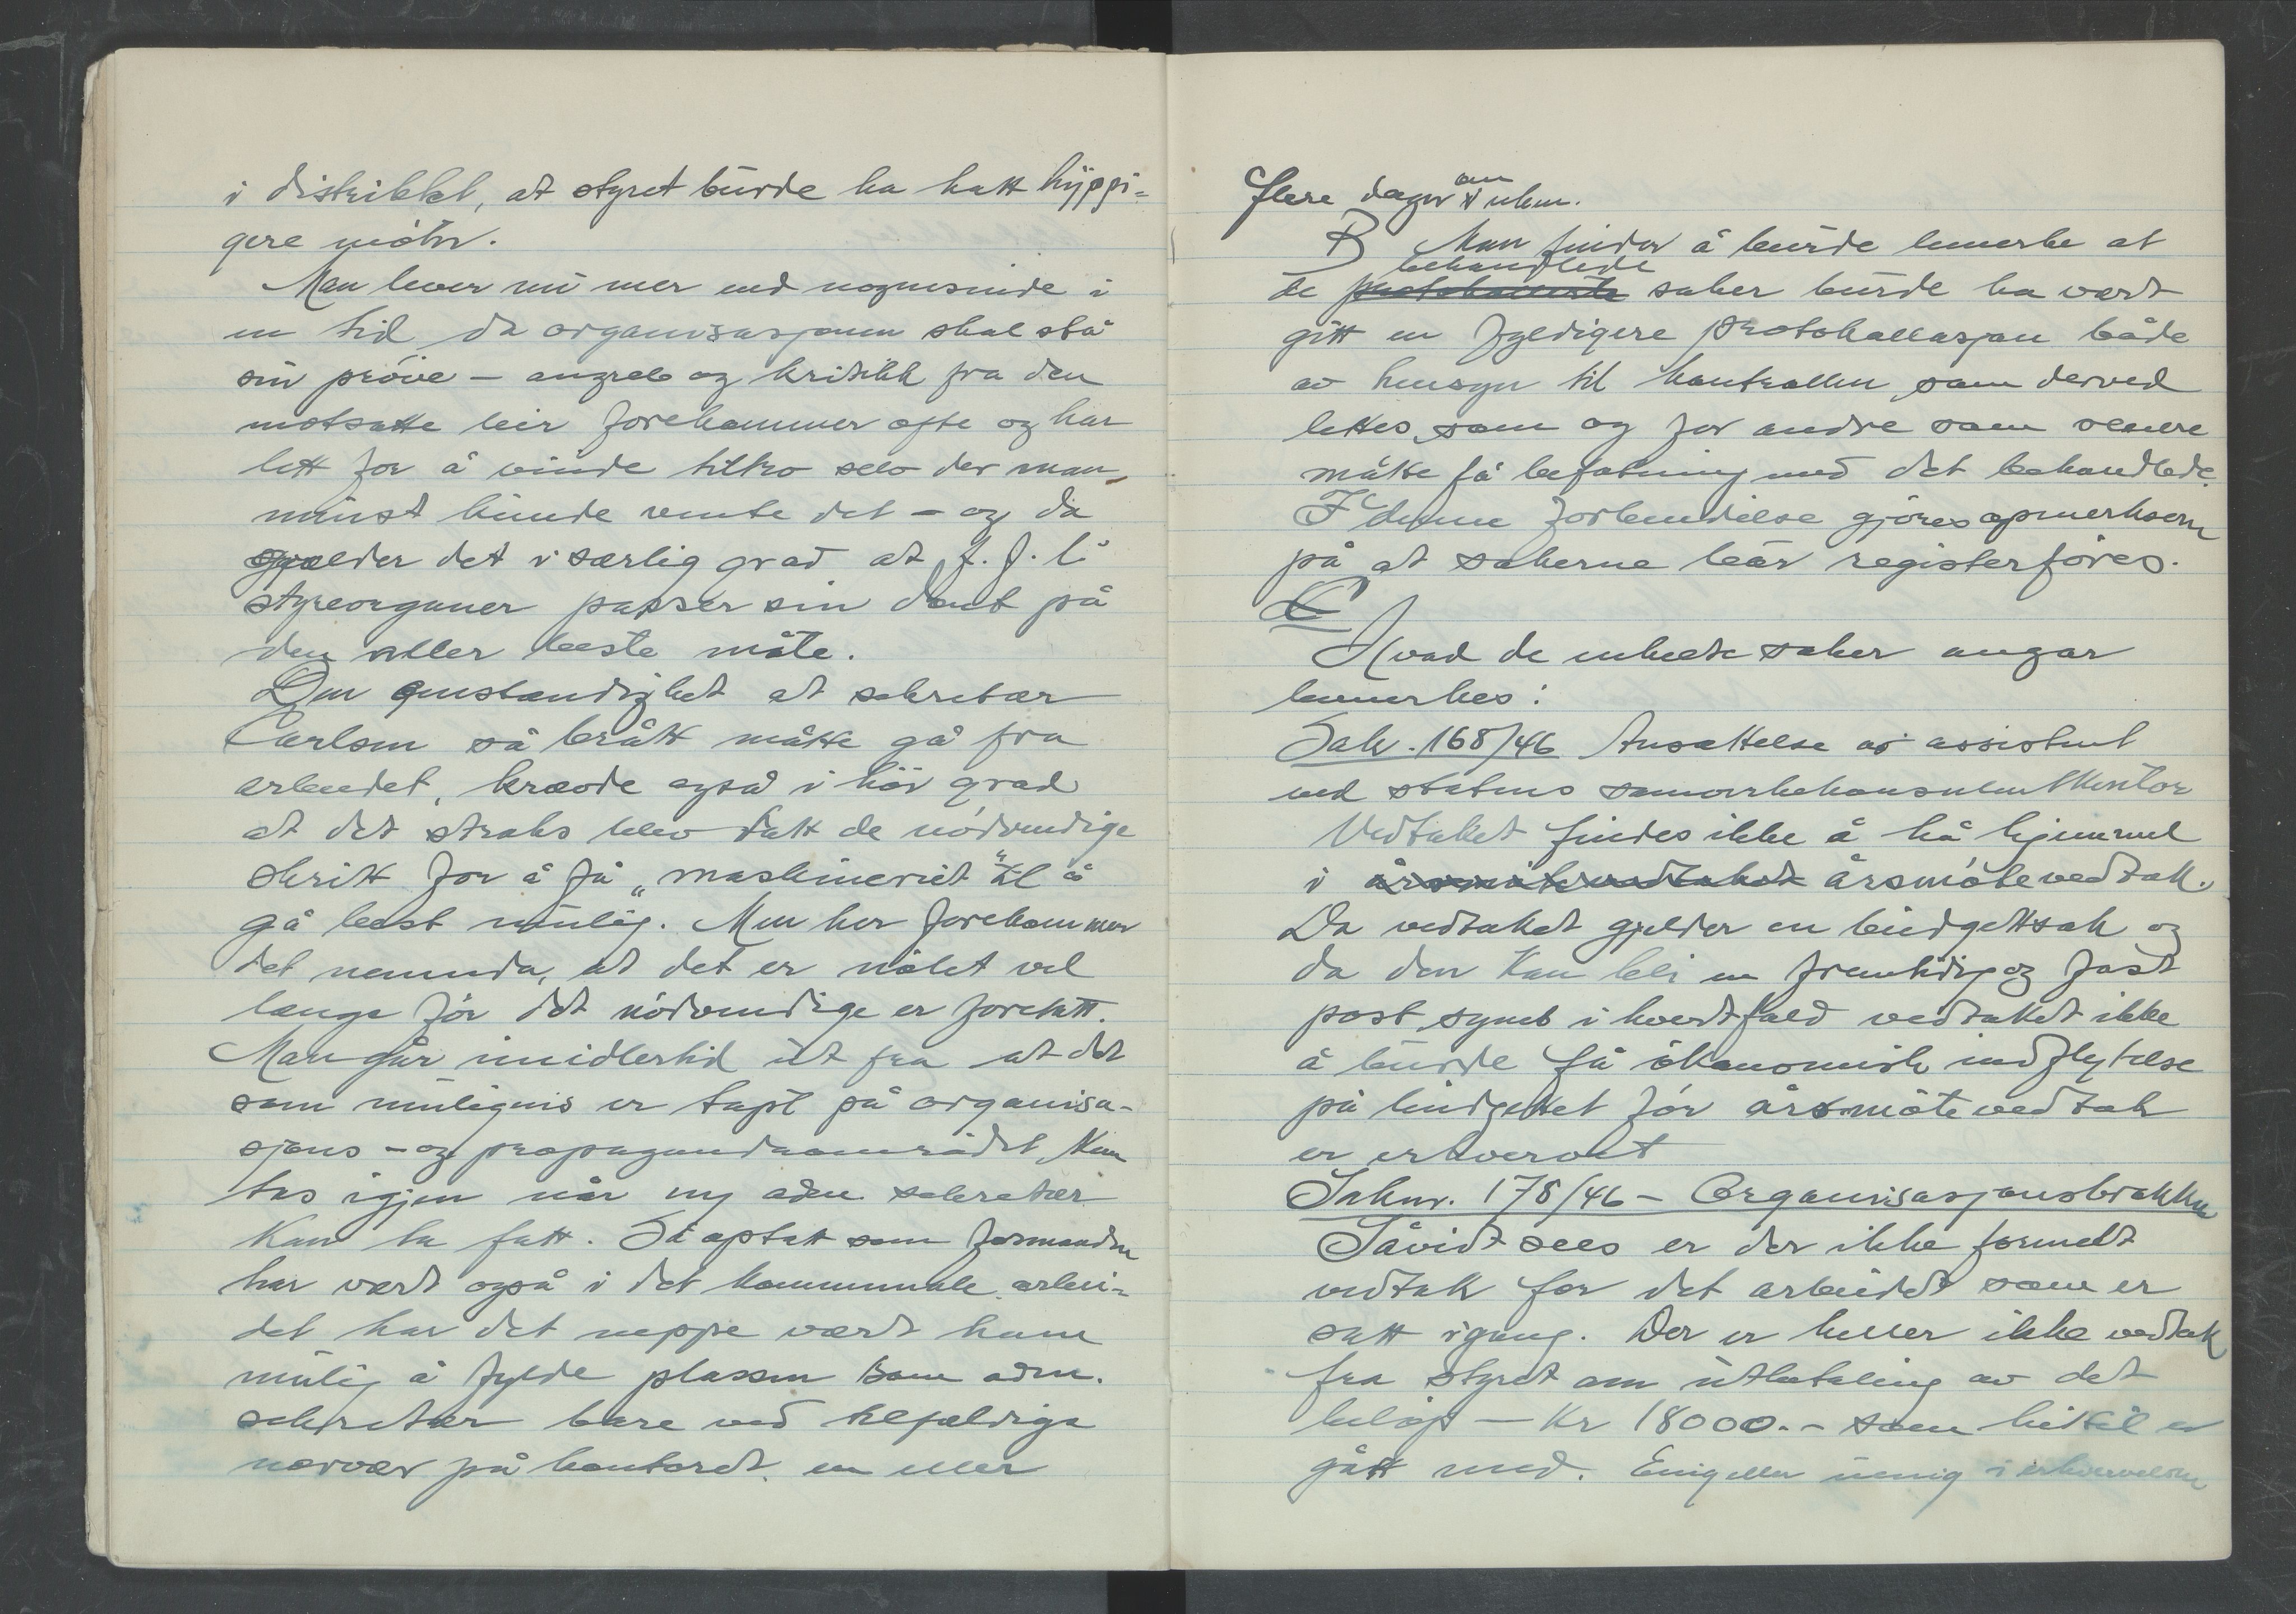 i distriktet, at styret burde ha hatt hyppi=
gere møter.
Man lever nu mer end nogensinde i
en tid da organisasjonen skal stå
sin prøve - angreb og kritikk fra den
motsatte leir forekommer ofte og har
lett for å vinde tiltro selv der man
minst kunde vente det - og da
gjælder det i særlig grad at f.f.l's
styreorganer passer sin dont på
den aller beste måte.
Den omstændighet at sekretær
Carlsen så brått måtte gå fra
arbeidet, krævde også i höi grad
at det straks blev tatt de nödvendige
skritt for å få „maskineriet" til å
gå best mulig. Men her forekommer
det nemnda, at det er nölet vel
længe för det nödvendige er foretatt.
Man går imidlertid ut fra at det
som muligens er tapt på organisa-
sjons - og propagandaområdet, kan
tas igjen når ny adm. sekretær
kan ha fatt. Så optatt som formanden
har vært også i det kommunale arbei=
det har det neppe vært ham
mulig å fylde plassen som adm.
sekretær bare ved tilfældige
nærvær på kontoret en eller
flere dager om uken.
B Man finder å burde bemerke at
de protokollerte behandlede saker burde ha vært
gitt en fyldigere protokollasjon både
av hensyn til kontrollen, som derved
lettes, som og for andre som senere
måtte få befatning med det behandlede.
I denne forbindelse gjöres opmerksom
på at sakerne bör registerföres.
C
Hvad de enkelte saker angår
bemerkes:
Sak. 168/46 Ansettelse av assistent
ved statens konsulentkontor
Vedtaket findes ikke å ha hjemmel
i årsmötevedtaket årsmötevedtak.
Da vedtaket gjelder en budgettsak og
da den kan bli en fremtidig og fast
post, synes i hvertfald vedtaket ikke
å burde få ökonomisk indflytelse
på budgettet för årsmötevedtak
er erhvervet
Saknr. 178/46 - Organisasjonsbrakken
Såvidt sees er der ikke formelt
vedtak for det arbeidet som er
satt igang. Der er heller ikke vedtak
fra styret om utbetaling av det
belöp - kr 18000.- som hittil er
gått med. Enig eller uenig i erhvervelsen